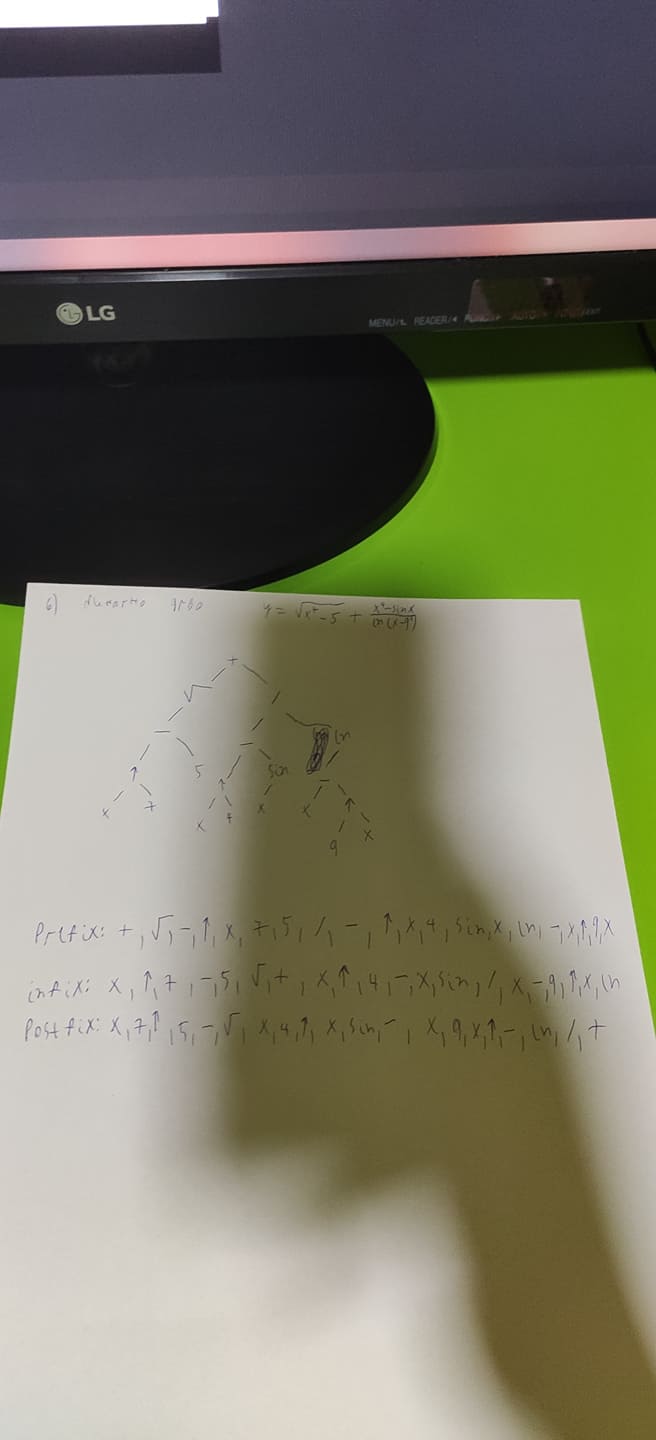 LG
MENU/
READER/
AUTO
6)
y = √x⁷-5 + x⁴-sinx / ln(x-9ˣ)
+
√ /
- - ln
↑ 5 ↑ sin -
x 7 x 4 x x ↑
9 x
Prefix: +, √, -, ↑, x, 7, 5, /, -, ↑, x, 4, sin, x, ln, -, x, ↑, 9, x
infix: x, ↑, 7, -, 5, √, +, x, ↑, 4, -, x, sin, /, x, -, 9, ↑, x, ln
Postfix: x, 7, ↑, 5, -, √, x, 4, ↑, x, sin, -, x, 9, x, ↑, -, ln, /, +